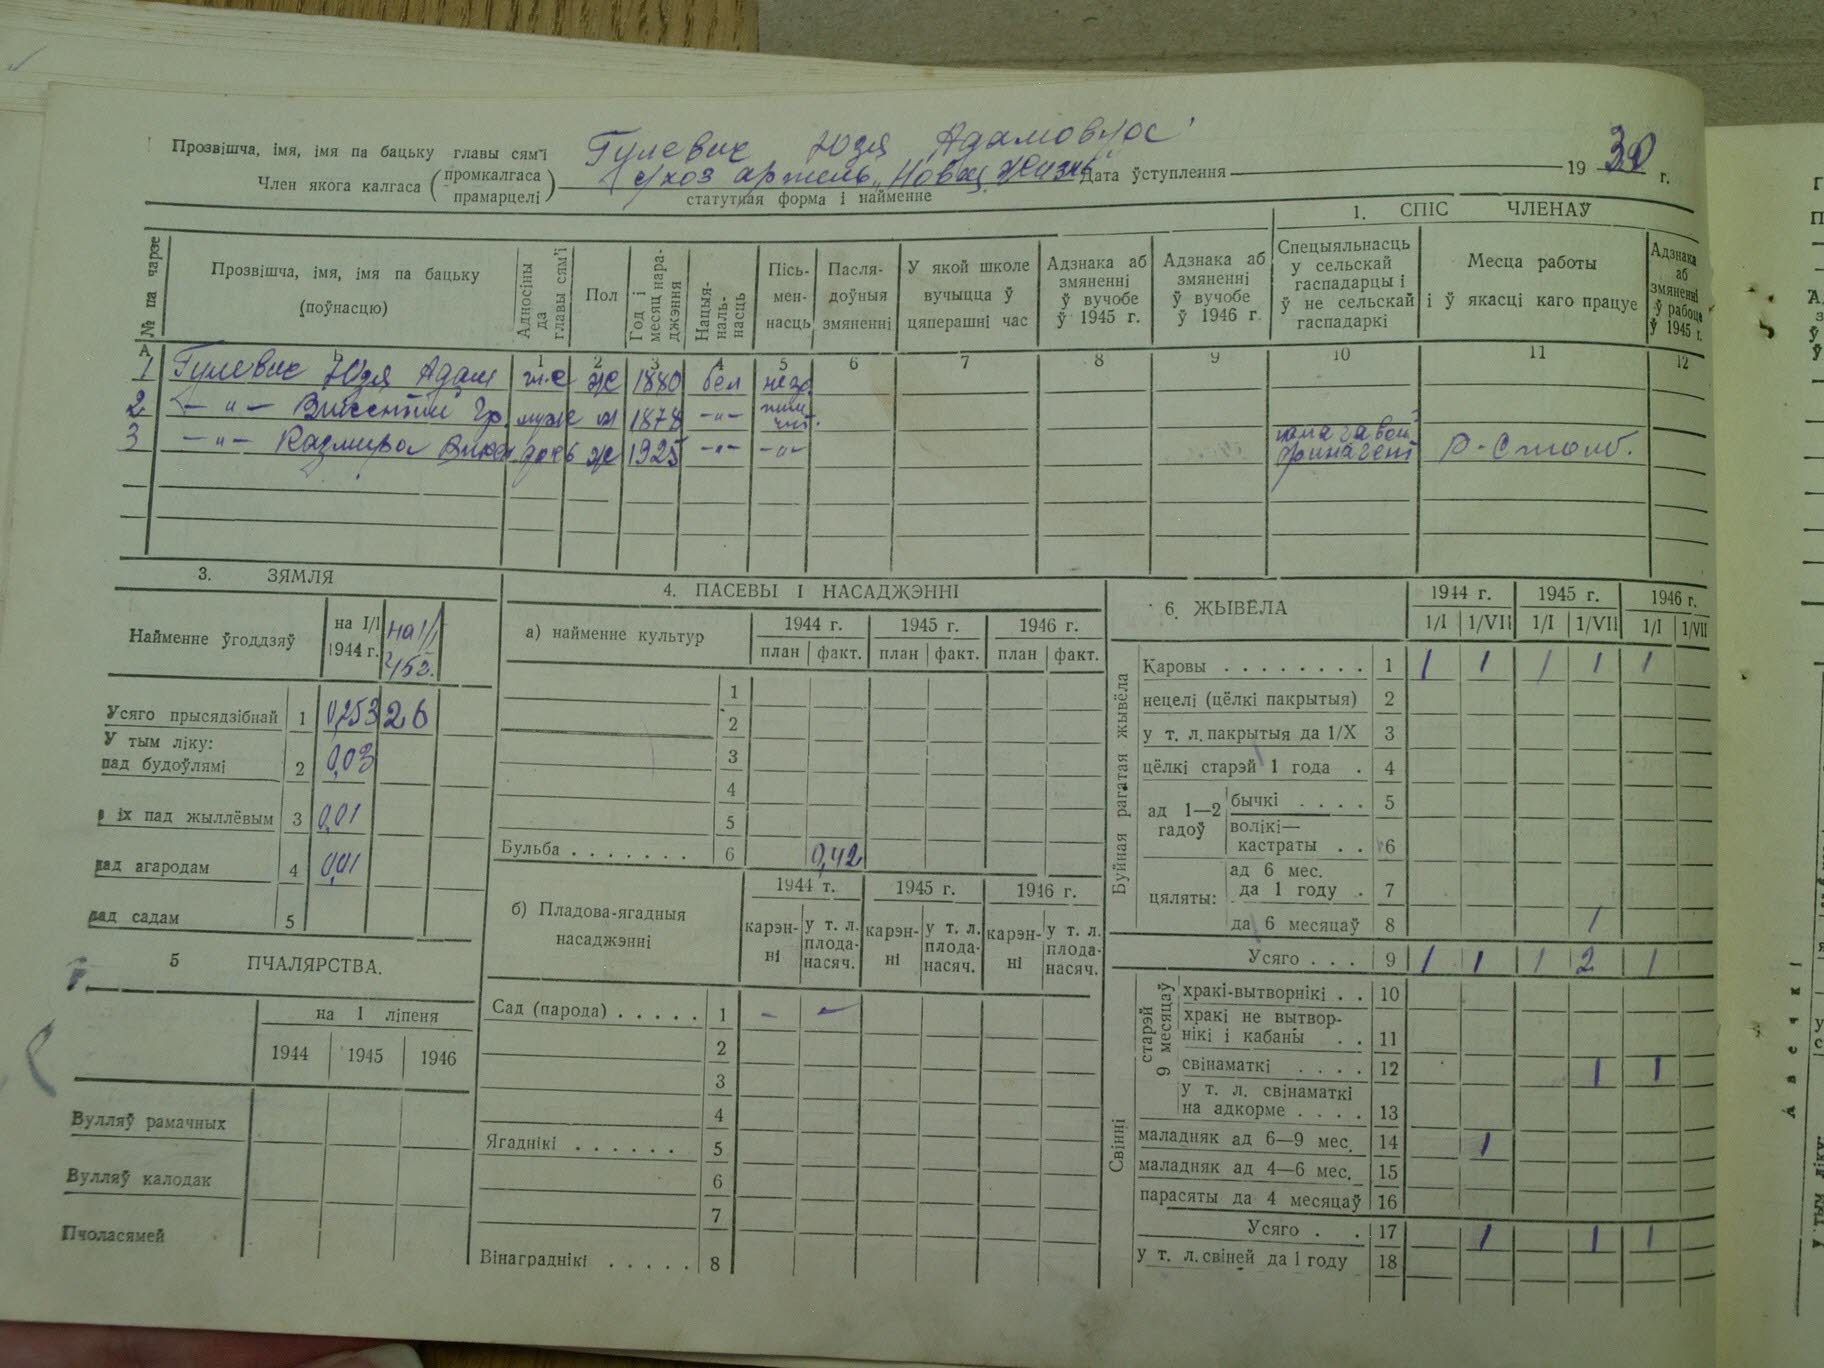 Прозвішча, імя, імя па бацьку главы сям'і Гулевис Юзя Адамовнос
Член якога калгаса (промкалгаса прамарцелі) с/хоз артель „Новая жизнь" Дата ўступлення 19 г.
статутная форма і найменне
1. СПІС ЧЛЕНАЎ
№ па чарзе
Прозвішча, імя, імя па бацьку (поўнасцю)
Адносіны да главы сям'і
Пол
Год і месяц нараджэння
Нацыянальнасць
Пісьменнасць
Паслядоўныя змяненні
У якой школе вучыцца ў цяперашні час
Адзнака аб змяненні ў вучобе ў 1945 г.
Адзнака аб змяненні ў вучобе ў 1946 г.
Спецыяльнасць у сельскай гаспадарцы і ў не сельскай гаспадаркі
Месца работы і ў якасці каго працуе
Адзнака аб змяненні ў рабоце ў 1945 г.
А 1 2 3 4 5 6 7 8 9 10 11 12
1 Гулевис Юзя Адам гл.с ж 1880 бел негр
2 — „ — Винсентий Гр. муж м 1878 —„—
3 — „ — Казмира Викен дочь ж 1925 —„— —„— р-Столб.
3. ЗЯМЛЯ
Найменне ўгоддзяў на I/I 1944 г. на 1/I
Усяго прысядзібнай 1 0,253 26
У тым ліку:
пад будоўлямі 2 0,03
з іх пад жыллёвым 3 0,01
пад агародам 4 0,01
пад садам 5
5 ПЧАЛЯРСТВА.
на 1 ліпеня
1944 1945 1946
Вулляў рамачных
Вулляў калодак
Пчоласямей
4. ПАСЕВЫ І НАСАДЖЭННІ
а) найменне культур 1944 г. 1945 г. 1946 г.
план факт. план факт. план факт.
1
2
3
4
5
Бульба . . . . . . . 6 0,42
б) Пладова-ягадныя насаджэнні
1944 г. 1945 г. 1946 г.
карэнні у т. л. плоданасяч. карэнні у т. л. плоданасяч. карэнні у т. л. плоданасяч.
Сад (парода) . . . . . 1 – –
2
3
4
Ягаднікі . . . . . . 5
6
7
Вінаграднікі . . . . . 8
6. ЖЫВЁЛА 1944 г. 1945 г. 1946 г.
1/I 1/VII 1/I 1/VII 1/I 1/VII
Буйная рагатая жывёла
Каровы . . . . . . . . 1 1 1 1 1 1
нецелі (цёлкі пакрытыя) 2
у т. л. пакрытыя да 1/X 3
цёлкі старэй 1 года . 4
ад 1—2 гадоў
бычкі . . . . 5
волікі—кастраты . . 6
цяляты:
ад 6 мес. да 1 году . 7
да 6 месяцаў 8 1
Усяго . . . 9 1 1 1 2 1
Свінні
старэй 9 месяцаў
хракі-вытворнікі . . 10
хракі не вытворнікі і кабаны . . 11
свінаматкі . . . . 12 1 1
у т. л. свінаматкі на адкорме . . . . 13
маладняк ад 6—9 мес. 14 1
маладняк ад 4—6 мес. 15
парасяты да 4 месяцаў 16
Усяго . . 17 1 1 1
у т. л. свіней да 1 году 18